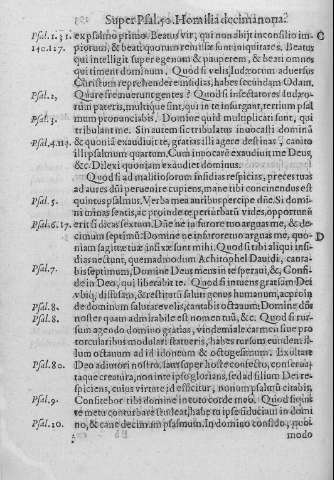 Super Psal. 50. Homilia decimanona.
Psal. 1. 31. ex psalmo primo. Beatus vir, qui non abijt in consilio im- C
140. 117. piorum, & beati quorum remissæ sunt iniquitates. Beatus
qui intelligit super egenum & pauperem, & beati omnes
qui timent dominum. Quod si velis Iudæorum adversus
Christum reprehendere insidias, habes secundam Odam.
Psal. 2. Quare fremuerunt gentes? Quod si insectatores Iudæo-
rum pateris, multique sint, qui in te insurgant, tertium psal
Psal. 3. mum pronunciabis. Domine quid multiplicati sunt, qui
tribulant me. Sin autem sic tribulatus invocasti dominū
Psal. 4. & quoniā exaudivit te, gratias illi agere destinas, canito
illi psalmum quartum. Cum invocarē exaudivit me Deus,
&c. Dilexi quoniam exaudiet dominus.
Quod si ad malitiosorum insidias respicias, preces tuas
ad aures dūi pervenire cupiens, mane tibi concinendus est
Psal. 5. quintus psalmus. Verba mea auribus percipe dūe. Si domi-
ni minas sentis, ac proinde te perturbatū vides, opportunū
Psal. 6. 17. erit si dicas sextum. Dūe ne in furore tuo arguas me, & de-
cimum septimū. Domine ne in furore tuo arguas me, quo- D
niam sagittæ tuæ infixæ sunt mihi. Quod si tibi aliqui insi-
dias nectunt, quemadmodum Achitophel Davidi, canta-
Psal. 7. bis septimum, Domine Deus meus in te speravi, &, Confi-
de in Deo, qui liberabit te. Quod si intuens gratiam Dei
vbiq; diffusam, & restitutū salum genus humanum, ac proīn
Psal. 8. de dominum salutare velis, cantabis octauum: Domine dūs
Psal. 8. noster quam admirabile est nomen tuū, &c. Quod si rur-
sum agendo domino gratias, vindemiale carmen siue pro
torcularibus modulari statueris, habes rursum eundem il-
lum octauum ad id idoneum & octogesimum. Exultate
Psal. 80. Deo adiutori nostro. Iam super hoste confecto, conservata-
taque creatura, non in te ipso glorians, sed ad filium Dei re-
spiciens, cuius virtute id effecitur, nonum psalmū citabis.
Psal. 9. Confitebor tibi domine in toto corde meo. Quod si quis
te metu conturbare studeat, habeto ipse fiduciam in domi
Psal. 10. no, & cane decimum psalmum. In domino confido, quo-
modo